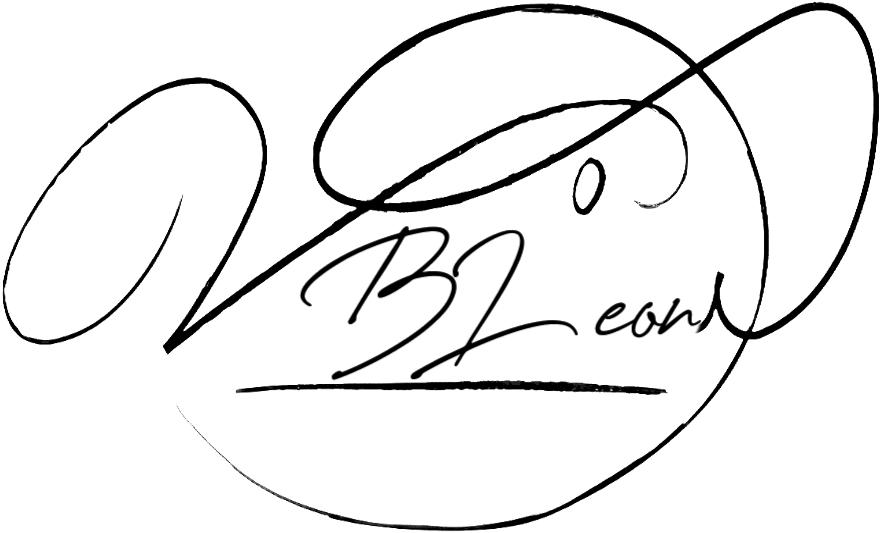 B Leon